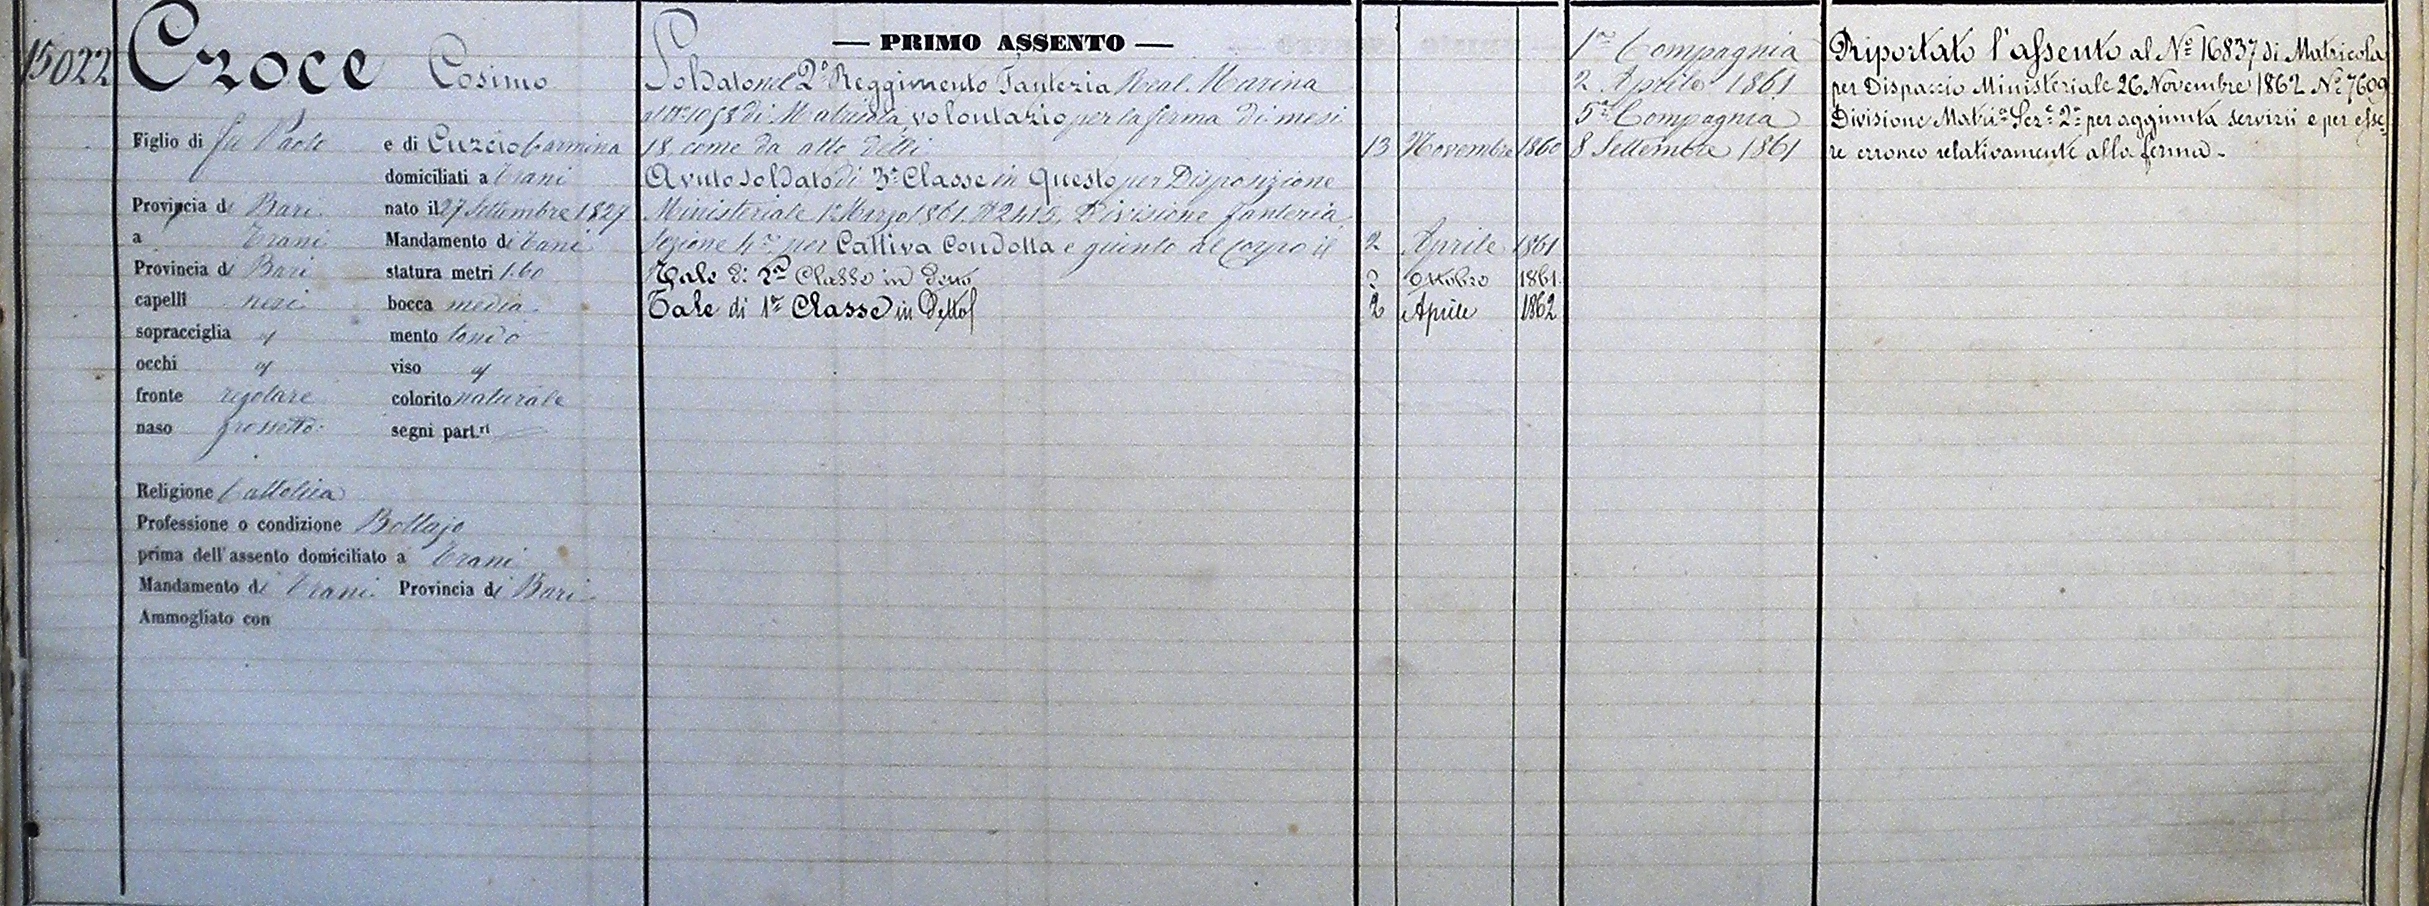 15022
Croce Cosimo
Figlio di fu Paolo e di Curcio Carmina
domiciliati a Trani
Provincia di Bari nato il 27 Settembre 1827
a Trani Mandamento di Trani
Provincia di Bari statura metri 1.60
capelli neri bocca media
sopracciglia mento tondo
occhi viso
fronte regolare colorito naturale
naso grossetto segni part.ri
Religione Cattolica
Professione o condizione Bottajo
prima dell'assento domiciliato a Trani
Mandamento di Trani Provincia di Bari
Ammogliato con
— PRIMO ASSENTO —
Soldato nel 2° Reggimento Fanteria Real Marina
al N° 1058 di Matricola, volontario per la ferma di mesi
18 come da atto delli 13 Novembre 1860
Avuto soldato di 3ª Classe in Questo per Disposizione
Ministeriale 1° Marzo 1861 N° 2415, Divisione fanteria,
Sezione 4ª per Cattiva Condotta e giunto al Corpo il 2 Aprile 1861
Tale di 2ª Classe in Detto 2 Ottobre 1861
Tale di 1ª Classe in Detto 2 Aprile 1862
1ª Compagnia
2 Aprile 1861
5ª Compagnia
8 Settembre 1861
Riportato l'assento al N° 16837 di Matricola
per Dispaccio Ministeriale 26 Novembre 1862 N° 7609
Divisione Matrie Sez.e 2ª per aggiunta servizii e per esse-
re erroneo relativamente alla ferma.